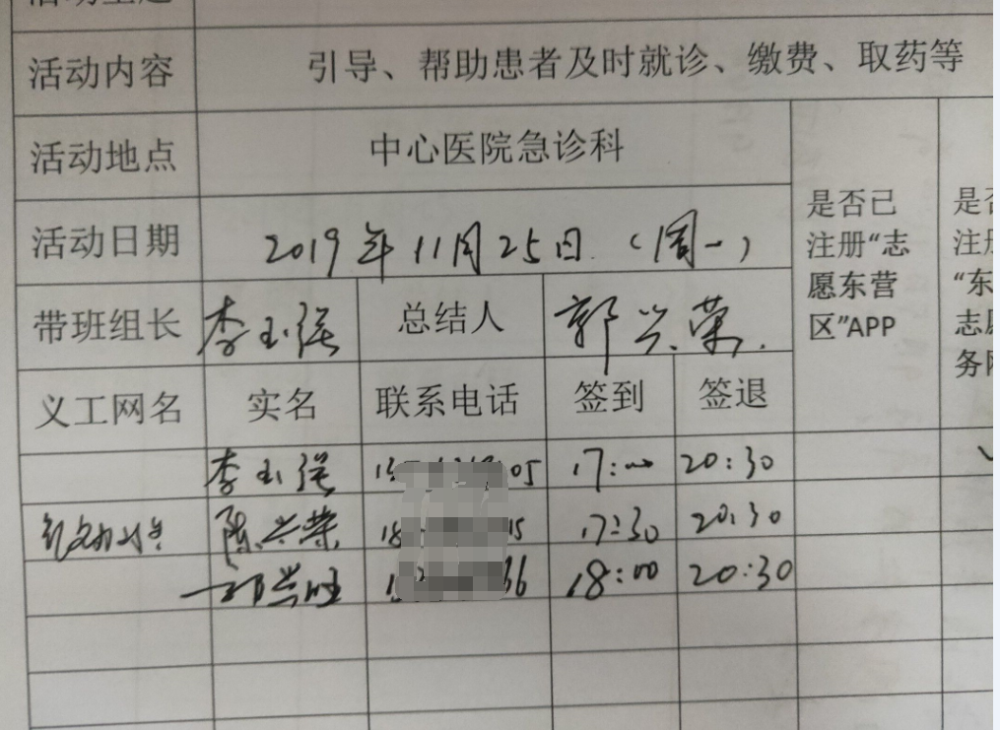 活动内容 引导、帮助患者及时就诊、缴费、取药等
活动地点 中心医院急诊科
活动日期 2019年11月25日（周一）
是否已
注册“志
愿东营
区”APP
带班组长 李玉强 总结人 郭兴荣
义工网名 实名 联系电话 签到 签退
李玉强 05 17:00 20:30
陈兴荣 18 15 17:30 20:30
36 18:00 20:30